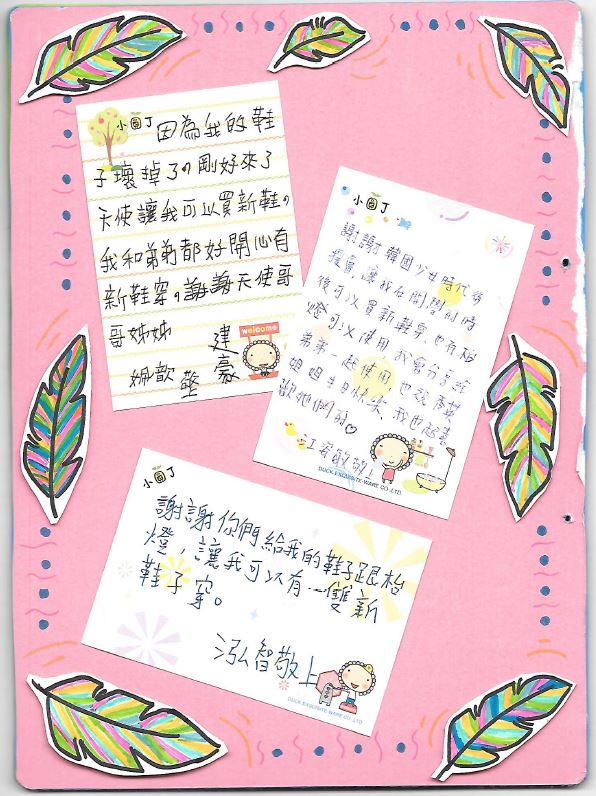 小園丁
因為我的鞋
子壞掉了,剛好來了
天使讓我可以買新鞋,
我和弟弟都好開心有
新鞋穿,謝謝天使哥
哥姊姊
建豪
婉歆
welcome
小園丁
謝謝韓國少女時代後
援會,讓我在開學的時
後可以買新鞋穿,也有枱
燈可以使用,我會分享給
弟弟一起使用,也祝秀英
姐姐生日快樂,我也超喜
歡她們的♡
敬上
DUCK EXQUISITE-WARE CO.,LTD.
小園丁
謝謝你們給我的鞋子跟枱
燈,讓我可以有一雙新
鞋子穿。
泓智敬上
DUCK EXQUISITE-WARE CO.,LTD.